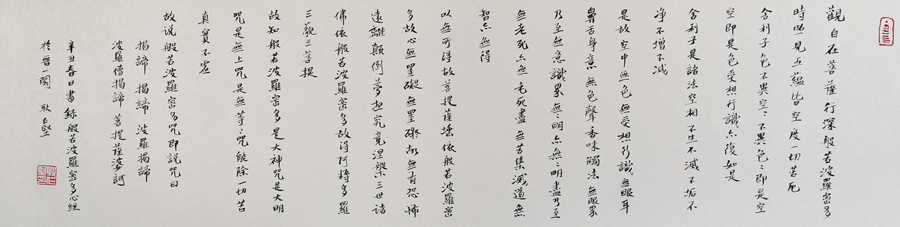 觀自在菩薩行深般若波羅蜜多
時照見五蘊皆空度一切苦厄
舍利子色不異空空不異色色即是空
空即是色受想行識亦復如是
舍利子是諸法空相不生不滅不垢不
淨不增不減
是故空中無色無受想行識無眼耳
鼻舌身意無色聲香味觸法無眼界
乃至無意識界無無明亦無無明盡乃至
無老死亦無老死盡無苦集滅道無
智亦無得
以無所得故菩提薩埵依般若波羅蜜
多故心無罣礙無罣礙故無有恐怖
遠離顛倒夢想究竟涅槃三世諸
佛依般若波羅蜜多故得阿耨多羅
三藐三菩提
故知般若波羅蜜多是大神咒是大明
咒是無上咒是無等等咒能除一切苦
真實不虛
故說般若波羅蜜多咒即說咒曰
揭諦 揭諦 波羅揭諦
波羅僧揭諦 菩提薩婆訶
辛丑春日書錄般若波羅蜜多心經